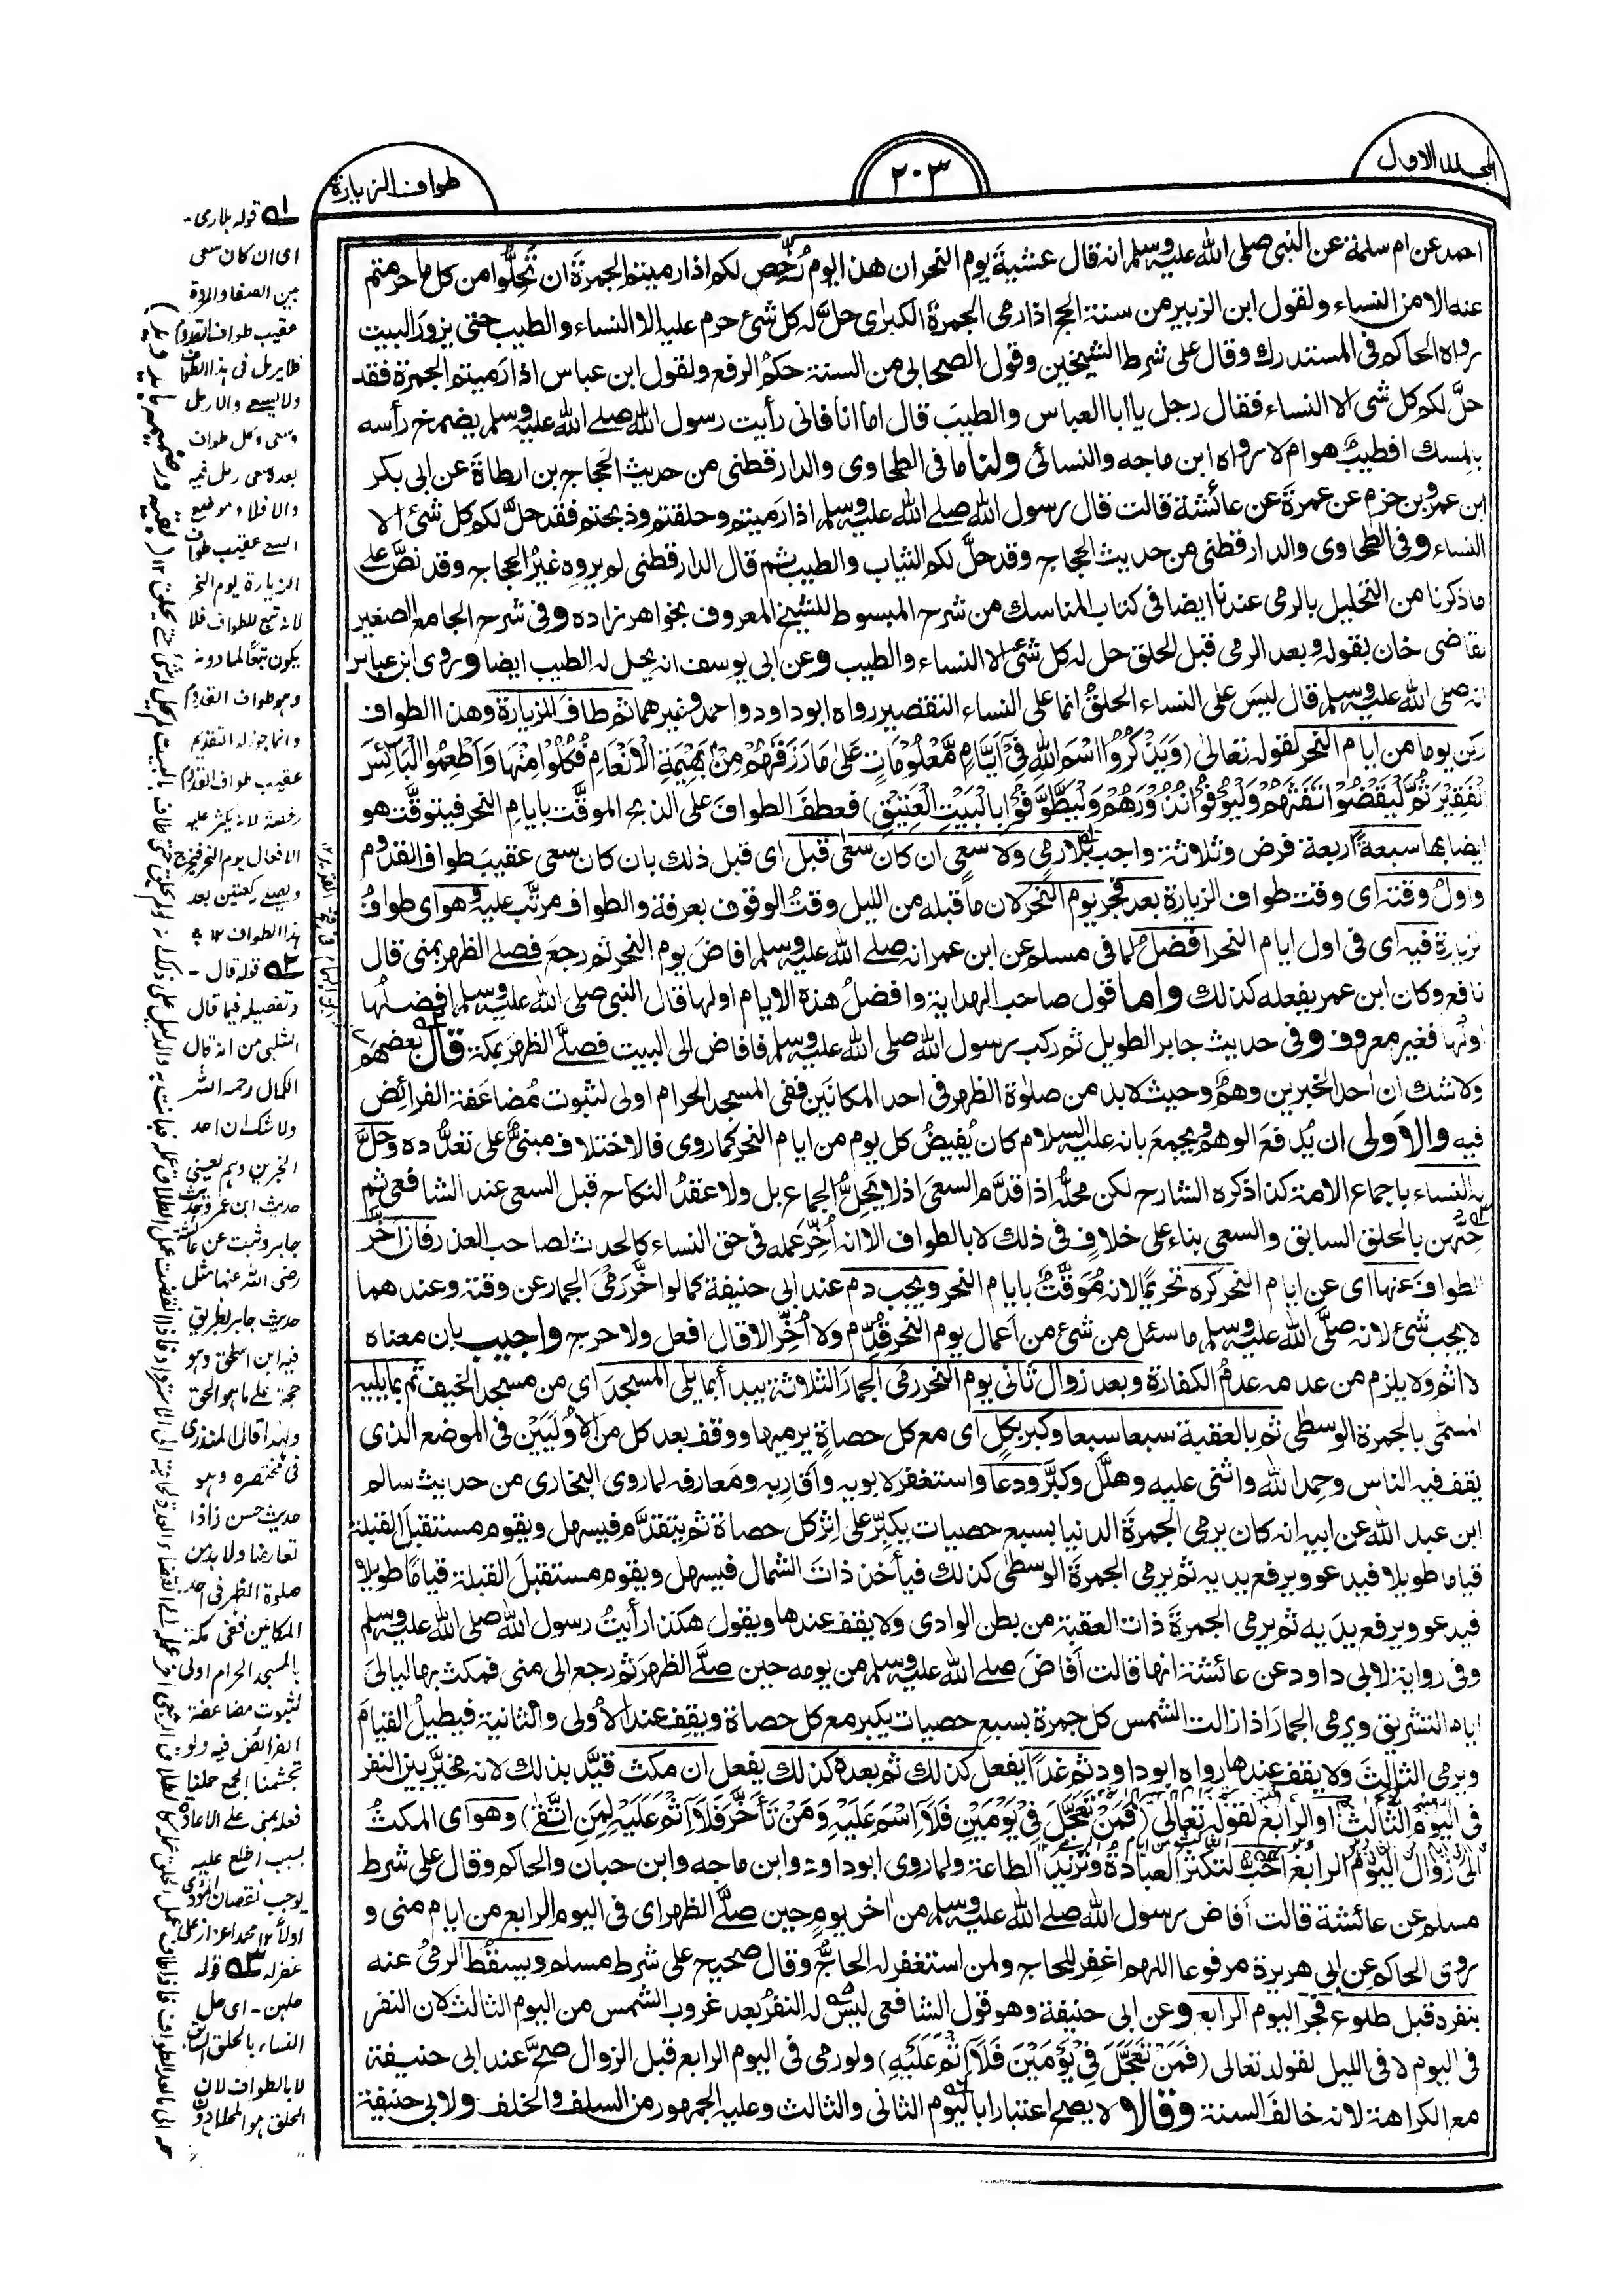 المجلد الاول
٢٠٣
طواف الزيارة
احمد عن ام سلمة عن النبى صلى الله عليه وسلم انه قال عشية يوم النحر ان هذا اليوم رُخّص لكم اذا رميتم الجمرة ان تَحِلُّوا من كل ما حرمتم
عنه الا من النساء ولقول ابن الزبير من سنة الحج اذا رمى الجمرة الكبرى حلّ له كل شئ حرم عليه الا النساء والطيب حتى يزور البيت
رواه الحاكم فى المستدرك وقال على شرط الشيخين وقول الصحابى من السنة حكمُ الرفع ولقول ابن عباس اذا رميتم الجمرة فقد
حلّ لكم كل شى الا النساء فقال رجل يا ابا العباس والطيبَ قال اما انا فانى رأيت رسول الله صلے الله عليه وسلم يضمخ رأسه
بالمسك افطيبٌ هو ام لا رواه ابن ماجه والنسائى ولنا ما فى الطحاوى والدارقطنى من حديث الحجاج بن ارطاة عن ابى بكر
ابن عمرو بن حزم عن عمرة عن عائشة قالت قال رسول الله صلے الله عليه وسلم اذا رميتم وحلقتم وذبحتم فقد حلّ لكم كل شئ الا
النساء وفى الطحاوى والدارقطنى من حديث الحجاج وقد حلّ لكم الثياب والطيب ثم قال الدارقطنى لم يروه غيرُ الحجاج وقد نصّ على
ما ذكرنا من التحليل بالرمى عندنا ايضا فى كتاب المناسك من شرح المبسوط للشيخ المعروف بخواهر زاده وفى شرح الجامع الصغير
لقاضى خان بقوله وبعد الرمى قبل الحلق حل له كل شئ الا النساء والطيب وعن ابى يوسف انه يحل له الطيب ايضا وروى ابن عباس
انه صلى الله عليه وسلم قال ليس على النساء الحلقُ انما على النساء التقصير رواه ابوداود واحمد وغيرهما ثم طاف للزيارة وهذا الطواف
ركن يوما من ايام النحر لقوله تعالى (وَيَذْكُرُوا اسْمَ اللهِ فِىْ اَيَّامٍ مَّعْلُوْمَاتٍ عَلٰى مَا رَزَقَهُمْ مِنْ بَهِيْمَةِ الْاَنْعَامِ فَكُلُوْا مِنْهَا وَاَطْعِمُوا الْبَائِسَ
الْفَقِيْرَ ثُمَّ لْيَقْضُوْا تَفَثَهُمْ وَلْيُوْفُوْا نُذُوْرَهُمْ وَلْيَطَّوَّفُوْا بِالْبَيْتِ الْعَتِيْقِ) فعطفَ الطوافَ على الذبح الموقّت بايام النحر فيتوقّت هو
ايضا بها سبعةً اربعة فرض وثلاثة واجب بلا رمى ولا سعى ان كان سعٰى قبل اى قبل ذلك بان كان سعى عقيبَ طواف القدوم
واولُ وقته اى وقت طواف الزيارة بعد فجر يوم النحر لان ما قبله من الليل وقتُ الوقوف بعرفة والطواف مرتّب عليه وهو اى طوافُ
الزيارة فيه اى فى اول ايام النحر افضلُ لما فى مسلم عن ابن عمر انه صلے الله عليه وسلم افاضَ يوم النحر ثم رجع فصلے الظهر بمنى قال
نافع وكان ابن عمر يفعله كذلك واما قول صاحب الهداية وافضلُ هذه الايام اولها قال النبى صلى الله عليه وسلم افضلُها
اولُها فغير معروف وفى حديث جابر الطويل ثم ركب رسول الله صلى الله عليه وسلم فافاض الى البيت فصلّے الظهر بمكة قال بعضهم
ولا شك ان احد الخبرين وهمٌ وحيث لا بد من صلوٰة الظهر فى احد المكانين ففى المسجد الحرام اولى لثبوت مُضاعَفة الفرائض
فيه والاَولى ان يُدفعَ الوهمُ ويجمعَ بانه عليه السلام كان يُفيضُ كل يوم من ايام النحر كما روى فالاختلاف مبنىٌّ على تعدُّده وحلَّ
به النساء باجماع الامة كذا ذكره الشارح لكن محلُّه اذا قدّم السعىَ اذ لا يَحِلُّ الجماع بل ولا عقدُ النكاح قبل السعى عند الشافعى ثم
حِلُّهن بالحلق السابق والسعى بناء على خلافٍ فى ذلك لا بالطواف الا انه اُخِّرَ عمله فى حق النساء كالحدث لصاحب العذر فان اَخَّرَ
الطوافَ عنها اى عن ايام النحر كره تحريمًا لانه مُوَقَّتٌ بايام النحر ويجب دم عند ابى حنيفة كما لو اخَّرَ رمىَ الجمار عن وقته وعندهما
لا يجب شئ لانه صلَّى الله عليه وسلم ما سئل من شئ من اعمال يوم النحر قُدّم ولا اُخّر الا قال افعل ولا حرج واجيب بان معناه
لا اثم ولا يلزم من عدمه عدمُ الكفارة وبعد زوال ثانى يوم النحر رمى الجمارَ الثلاثة يبدأ بما يلى المسجدَ اى من مسجد الخيف ثم بما يليه
المسمّٰى بالجمرة الوسطٰى ثم بالعقبة سبعا سبعا وكبر بكلٍ اى مع كل حصاةٍ يرميها ووقف بعد كل من الاُوْلَيَيْنِ فى الموضع الذى
يقف فيه الناس وحمد الله واثنى عليه وهلَّل وكبَّر ودعا واستغفر لابويه واقاربه ومعارفه لما روى البخارى من حديث سالم
ابن عبد الله عن ابيه انه كان يرمى الجمرة الدنيا بسبع حصيات يكبِّر على اِثْر كل حصاة ثم يتقدَّم فيسهل ويقوم مستقبلَ القبلة
قياما طويلا فيدعو ويرفع يديه ثم يرمى الجمرةَ الوسطى كذلك فيأخذ ذاتَ الشمال فيسهل ويقوم مستقبلَ القبلة قيامًا طويلا
فيدعو ويرفع يدَيه ثم يرمى الجمرةَ ذات العقبة من بطن الوادى ولا يقف عندها ويقول هكذا رأيتُ رسول الله صلى الله عليه وسلم
وفى رواية لابى داود عن عائشة انها قالت اَفاضَ صلے الله عليه وسلم من يومه حين صلّے الظهرَ ثم رجع الى منى فمكث بها ليالىَ
ايام التشريق ويرمى الجمارَ اذا زالت الشمس كل جمرة بسبع حصيات يكبر مع كل حصاة ويقف عند الاُولى والثانية فيطيلُ القيامَ
ويرمى الثالثَ ولا يقف عندها رواه ابوداود ثم غداً يفعل كذلك ثم بعده كذلك يفعل ان مكث قيَّد بذلك لانه مخيَّر بين النفر
فى اليوم الثالث او الرابع لقوله تعالى (فَمَنْ تَعَجَّلَ فِىْ يَوْمَيْنِ فَلَآ اِثْمَ عَلَيْهِ وَمَنْ تَأَخَّرَ فَلَآ اِثْمَ عَلَيْهِ لِمَنِ اتَّقٰى) وهو اى المكثُ
الى زوال اليوم الرابع احَبُّ لتكثر العبادةُ وتزيد الطاعة ولما روى ابوداود وابن ماجه وابن حبان والحاكم وقال على شرط
مسلم عن عائشة قالت اَفاض رسول الله صلے الله عليه وسلم من اٰخر يومٍ حين صلّے الظهر اى فى اليوم الرابع من ايام منى و
روى الحاكم عن ابى هريرة مرفوعا اللهم اغفِر للحاج ولمن استغفر له الحاجُّ وقال صحيح على شرط مسلم ويسقُط الرمىُ عنه
بنفره قبل طلوع فجر اليوم الرابع وعن ابى حنيفة وهو قول الشافعى ليس له النفرُ بعد غروب الشمس من اليوم الثالث لان النفر
فى اليوم لا فى الليل لقوله تعالى (فَمَنْ تَعَجَّلَ فِىْ يَوْمَيْنِ فَلَآ اِثْمَ عَلَيْهِ) ولو رمى فى اليوم الرابع قبل الزوال صحَّ عند ابى حنيفة
مع الكراهة لانه خالفَ السنة وقالا لا يصح اعتبارا باليوم الثانى والثالث وعليه الجمهور من السلف والخلف ولابى حنيفة
١ قوله بلا رمى -
اى ان كان سعى
بين الصفا والمروة
عقيب طواف القدوم
فلا يرمل فى هذا الطواف
ولا يسعى والا رمل
وسعى وكل طواف
بعده سعى رمل فيه
والا فلا وموضع
السعے عقيب طواف
الزيارة يوم النحر
لانه تبع للطواف فلا
يكون تبعًا لما دونه
وهو طواف القدوم
وانما جوزله التقديم
عقيب طواف القدوم
رخصة لانه يكثر عليه
الافعال يوم النحر فيخرج
ويصلے ركعتين بعد
هذا الطواف ١٢
٢ قوله قال -
وتفصيله فيما قال
الشلبى من انه قال
الكمال رحمه الله
ولا شك ان احد
الخبرين وهم يعنى
حديث ابن عمر وحديث
جابر وثبت عن عائشة
رضى الله عنها مثل
حديث جابر بطريق
فيه ابن اسحٰق وهو
حجة على ما هو الحق
ولهذا قال المنذرى
فى مختصره وهو
حديث حسن واذا
تعارضا ولا بد من
صلوة الظهر فى احد
المكانين ففى مكة
بالمسجد الحرام اولى
لثبوت مضاعفة
الفرائض فيه ولو
تجشمنا الجمع حملنا
فعله بمنى على الاعادة
بسبب اطلع عليه
يوجب نقصان المؤدى
اولاً ١٢ محمد اعزاز على
غفرله ٣ قوله
حلهن - اى حل
النساء بالحلق السابق
لا بالطواف لان
الحلق هو المحلل دون